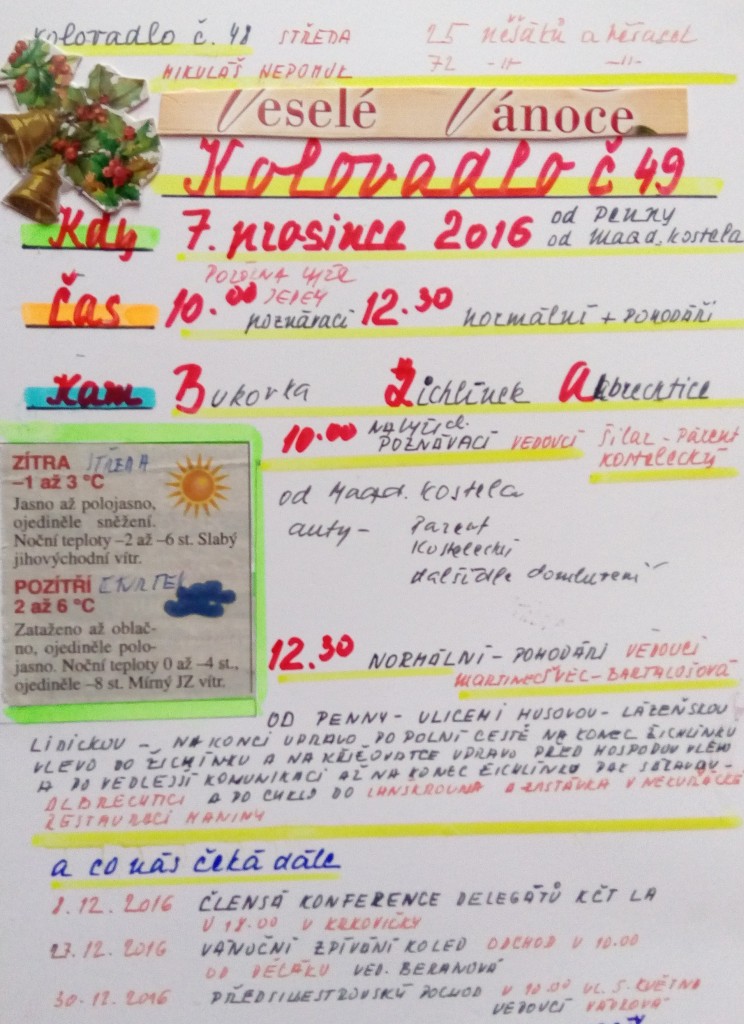 Kolovadlo č. 48 STŘEDA 25 něšáků a
MIKULÁŠ NEPOMUK 72 -11- -11-
Veselé Vánoce
Kolovadlo č 49
Kdy 7. prosince 2016 od Penny
od Magd. Kostela
Čas 10.00 poznávací 12.30 normální + POHODÁŘI
Kam Bukovka Žichlínek Albrechtice
10.00
POZNÁVACÍ VEDOUCÍ Šilar - Parent
KOSTELECKÝ
ZÍTRA STŘEDA
–1 až 3 °C
Jasno až polojasno,
ojediněle sněžení.
Noční teploty –2 až –6 st. Slabý
jihovýchodní vítr.
od Magd. Kostela
auty - Parent
Kostelecký
další dle domluvení
POZÍTŘÍ ČTVRTEK
2 až 6 °C
Zataženo až oblač-
no, ojediněle polo-
jasno. Noční teploty 0 až –4 st.,
ojediněle –8 st. Mírný JZ vítr.
12.30 NORMÁLNÍ - POHODÁŘI VEDOUCÍ
MARTINEC ŠVEC - BARTALOŠOVÁ
OD PENNY - ULICEMI HUSOVOU - LÁZEŇSKOU
LIDICKOU - NA KONCI VPRAVO PO POLNÍ CESTĚ NA KONEC ŽICHLÍNKU
VLEVO DO ŽICHLÍNKU A NA KŘIŽOVATCE VPRAVO PŘED HOSPODOU VLEVO
A PO VEDLEJŠÍ KOMUNIKACI AŽ NA KONEC ŽICHLÍNKU PAK SÁZAVU -
ALBRECHTICI A PO CYKLO DO LANŠKROUNA A ZASTÁVKA V NEKUŘÁCKÉ
RESTAURACI HANINY
a co nás čeká dále
8.12.2016 ČLENSÁ KONFERENCE DELEGÁTŮ KČT LA
V 18.00 V KRKOVIČKY
23.12.2016 VÁNOČNÍ ZPÍVÁNÍ KOLED ODCHOD V 10.00
OD DĚLÁKU VED. BERANOVÁ
30.12.2016 PŘEDSILVESTROVSKÝ POCHOD V 10.00 UL. 5. KVĚTNA
VEDOUCÍ VÁVROVÁ